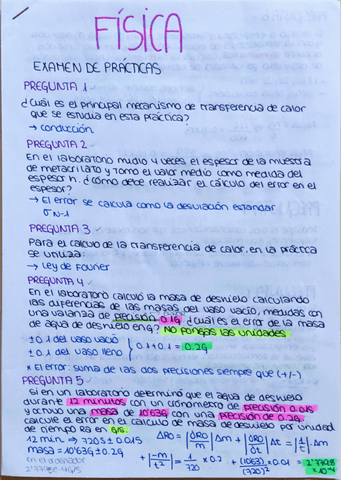 FÍSICA
EXAMEN DE PRÁCTICAS
PREGUNTA 1
¿Cuál es el principal mecanismo de transferencia de calor
que se estudia en esta práctica?
→ conducción
PREGUNTA 2
En el laboratorio mido 4 veces el espesor de la muestra
de metacrilato y tomo el valor medio como medida del
espesor h. ¿cómo debe realizar el cálculo del error en el
espesor?
→ El error se calcula como la desviación estándar
σN-1
PREGUNTA 3
Para el calculo de la transferencia de calor, en la práctica
se utiliza:
→ Ley de Fourier
PREGUNTA 4
En el laboratorio calculó la masa de deshielo calculando
las diferencias de las masas del vaso vacío, medidas con
una balanza de precisión 0.1g ¿cuál es el error de la masa
de agua de deshielo en g? No pongas las unidades
±0.1 del vaso vacío
±0.1 del vaso lleno } 0.1+0.1 = 0.2g
* El error: suma de las dos precisiones siempre que (+/-)
PREGUNTA 5
Si en un laboratorio determino que el agua de deshielo
durante 12 minutos con un cronómetro de precisión 0.01s
y obtuvo una masa de 10'63g con una precisión de 0.2g.
calcule el error en el calculo de masa de deshielo por unidad
de tiempo R0 en g/s.
12 min ⇒ 720s ± 0.01s ΔR0 = |∂R0/∂m| Δm + |∂R0/∂t| Δt = |1/t| · Δm
masa = 10'63g ± 0.2g + |-m/t²| = 1/720 × 0.2 + (10.63)/(720)² × 0.01 = 2'7798 × 10⁻⁴